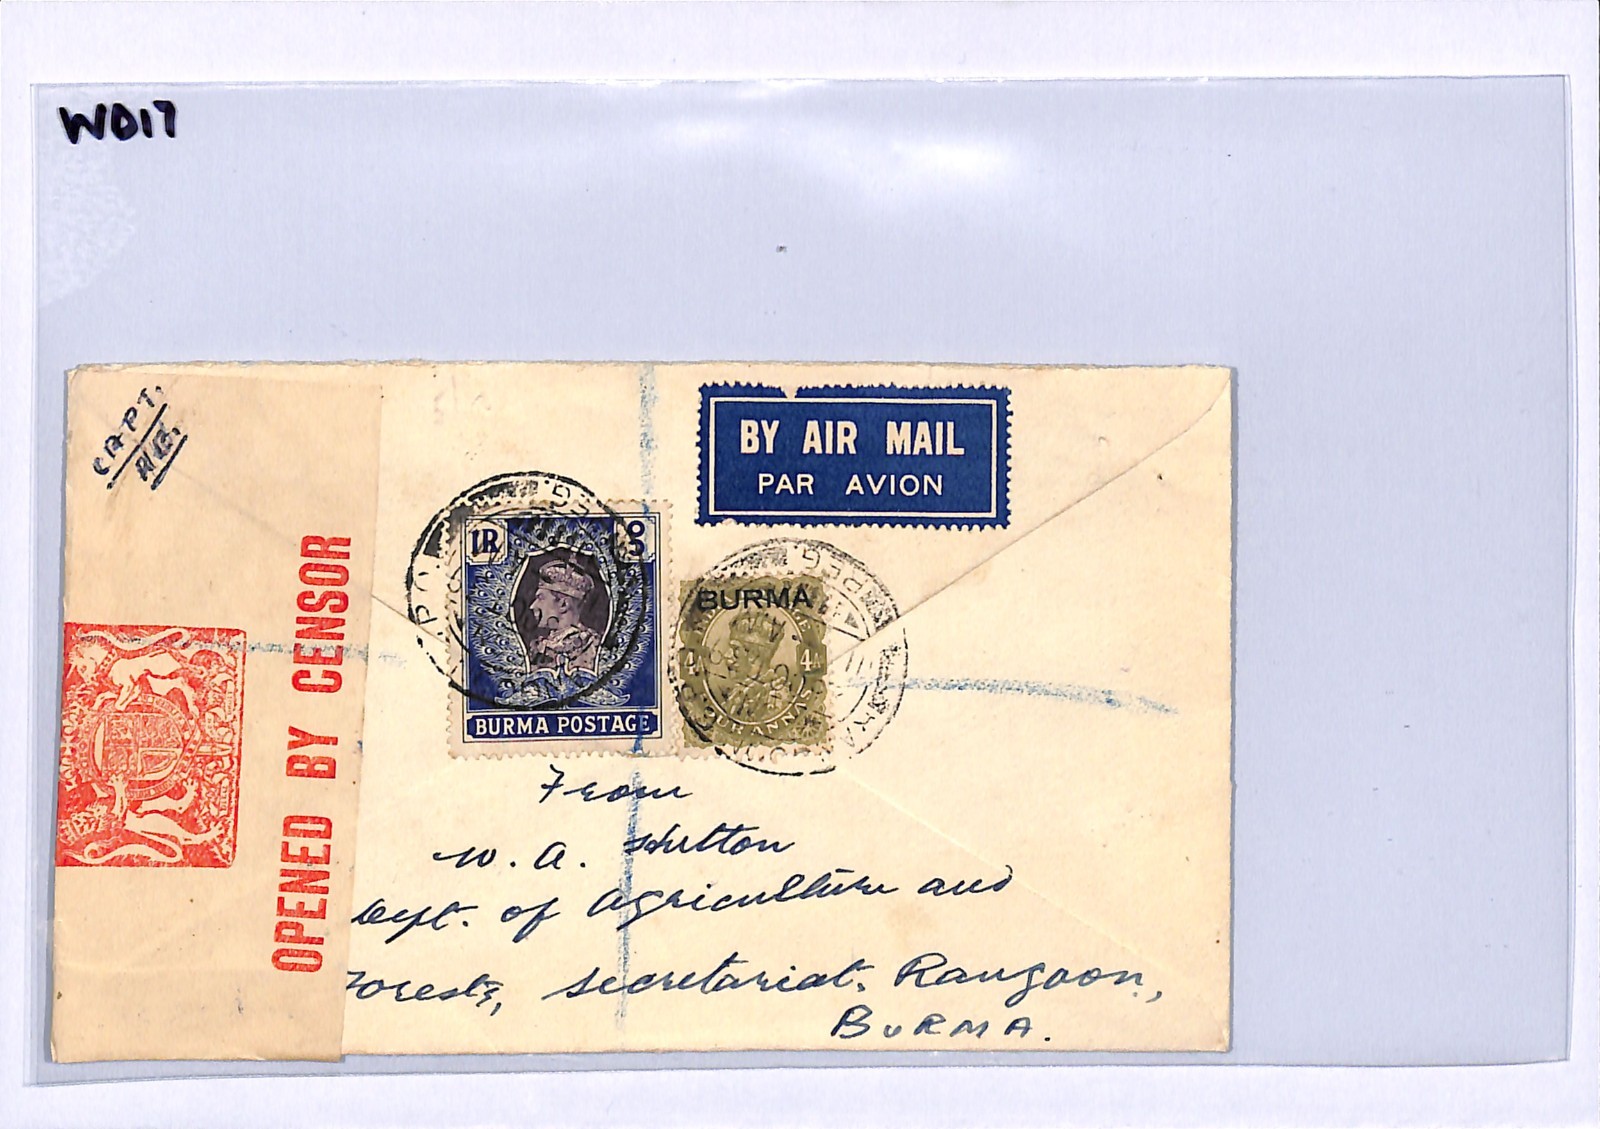 WD17
CAPT.
BY AIR MAIL
PAR AVION
1R
BURMA POSTAGE
BURMA
4A 4A
OPENED BY CENSOR
From
W. A. Hutton
Dept. of Agriculture and
Forests, Secretariat, Rangoon,
BURMA.